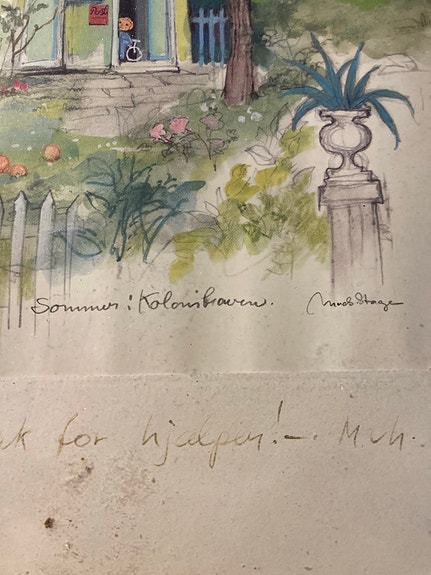 Post
Sommer i Kolonihaven. Mads Stage
ak for hjælpen! – . Mvh.